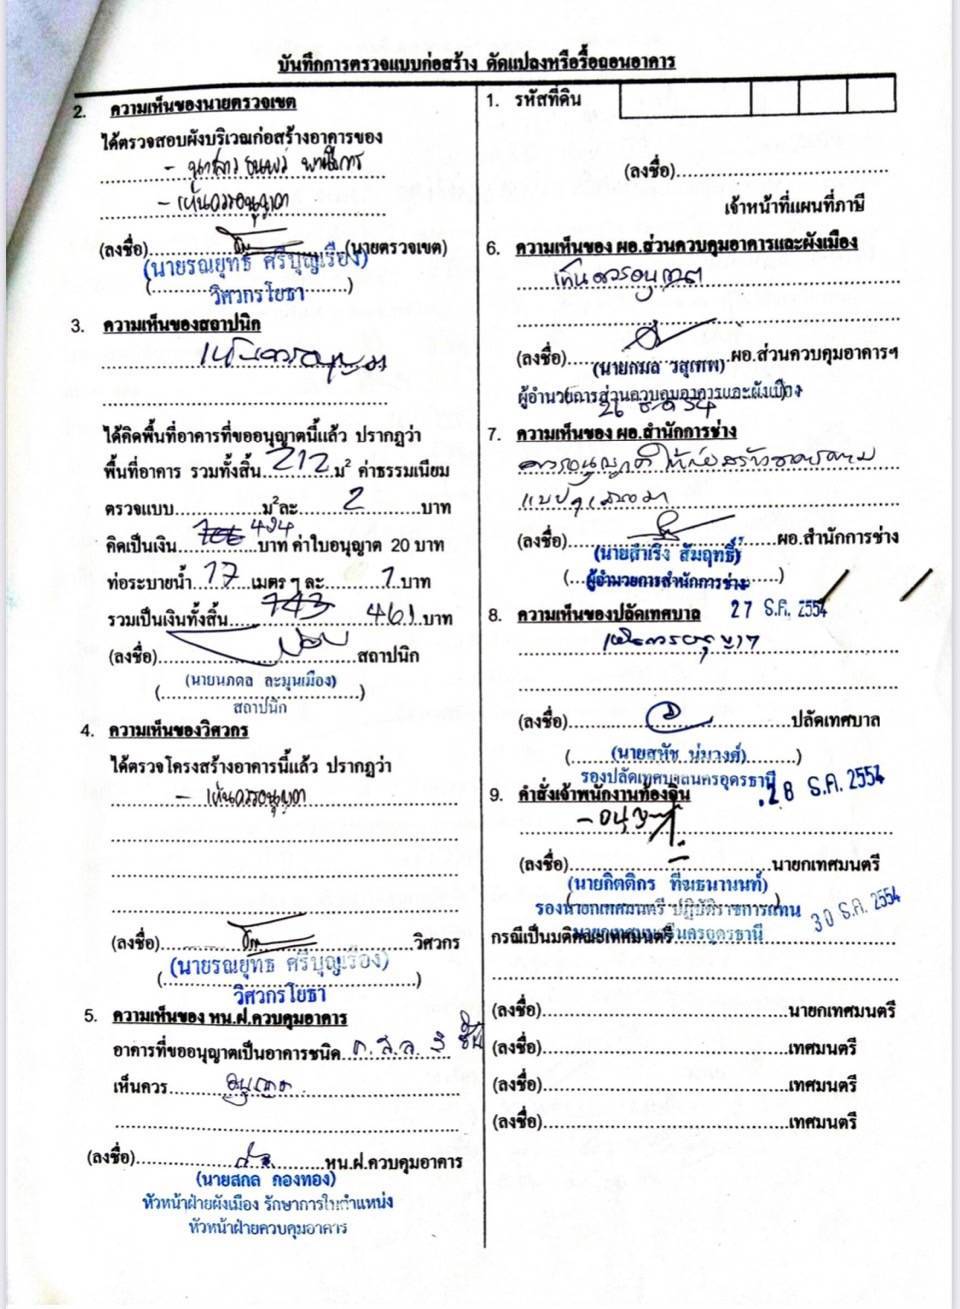 บันทึกการตรวจแบบก่อสร้าง ดัดแปลงหรือรื้อถอนอาคาร
2. ความเห็นของนายตรวจเขต
ได้ตรวจสอบผังบริเวณก่อสร้างอาคารของ
- นางสาว ธนพร
- เห็นควรอนุญาต
(ลงชื่อ)..............................(นายตรวจเขต)
(นายรณยุทธ ศรีบุญเรือง)
(..............................)
วิศวกรโยธา
3. ความเห็นของสถาปนิก
เห็นควรอนุญาต
ได้คิดพื้นที่อาคารที่ขออนุญาตนี้แล้ว ปรากฏว่า
พื้นที่อาคาร รวมทั้งสิ้น...212...ม² ค่าธรรมเนียม
ตรวจแบบ....................ม²ละ........2........บาท
คิดเป็นเงิน........424 บาท ค่าใบอนุญาต 20 บาท
ท่อระบายน้ำ..17..เมตร ๆ ละ........1.บาท
รวมเป็นเงินทั้งสิ้น....743 461.บาท
(ลงชื่อ)..............................สถาปนิก
(นายนภดล ละมูนเมือง)
(..............................)
สถาปนิก
4. ความเห็นของวิศวกร
ได้ตรวจโครงสร้างอาคารนี้แล้ว ปรากฏว่า
- เห็นควรอนุญาต
(ลงชื่อ)..............................วิศวกร
(นายรณยุทธ ศรีบุญเรือง)
(..............................)
วิศวกรโยธา
5. ความเห็นของ หน.ฝ.ควบคุมอาคาร
อาคารที่ขออนุญาตเป็นอาคารชนิด..ค.ส.ล. 3 ชั้น
เห็นควร........อนุญาต
(ลงชื่อ)..............................หน.ฝ.ควบคุมอาคาร
(นายสกล กองทอง)
หัวหน้าฝ่ายผังเมือง รักษาการในตำแหน่ง
หัวหน้าฝ่ายควบคุมอาคาร
1. รหัสที่ดิน
(ลงชื่อ)..............................
เจ้าหน้าที่แผนที่ภาษี
6. ความเห็นของ ผอ.ส่วนควบคุมอาคารและผังเมือง
เห็นควรอนุญาต
(ลงชื่อ)..............................ผอ.ส่วนควบคุมอาคารฯ
(นายกมล วสุเทพ)
ผู้อำนวยการส่วนควบคุมอาคารและผังเมือง
26 ธ.ค 54
7. ความเห็นของ ผอ.สำนักการช่าง
ควรอนุญาตให้ก่อสร้างอาคารตาม
แบบที่เสนอมา
(ลงชื่อ)..............................ผอ.สำนักการช่าง
(นายสำเริง สัมฤทธิ์)
(..............................)
ผู้อำนวยการสำนักการช่าง
27 ธ.ค. 2554
8. ความเห็นของปลัดเทศบาล
เห็นควรอนุญาต
(ลงชื่อ)..............................ปลัดเทศบาล
(นายสหัช นุ่มวงศ์)
รองปลัดเทศบาลนครอุดรธานี
28 ธ.ค. 2554
9. คำสั่งเจ้าพนักงานท้องถิ่น
- อนุญาต
(ลงชื่อ)..............................นายกเทศมนตรี
(นายกิตติกร ทีฆธนานนท์)
รองนายกเทศมนตรี ปฏิบัติราชการแทน
นายกเทศมนตรีนครอุดรธานี
30 ธ.ค. 2554
กรณีเป็นมติคณะเทศมนตรี
(ลงชื่อ)..............................นายกเทศมนตรี
(ลงชื่อ)..............................เทศมนตรี
(ลงชื่อ)..............................เทศมนตรี
(ลงชื่อ)..............................เทศมนตรี